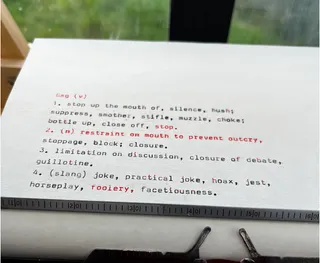 Gag (v)
1. stop up the mouth of, silence, hush;
suppress, smother, stifle, muzzle, choke;
bottle up, close off, stop.
2. (n) restraint on mouth to prevent outcry,
stoppage, block; closure.
3. limitation on discussion, closure of debate,
guillotine.
4. (slang) joke, practical joke, hoax, jest,
horseplay, foolery, facetiousness.